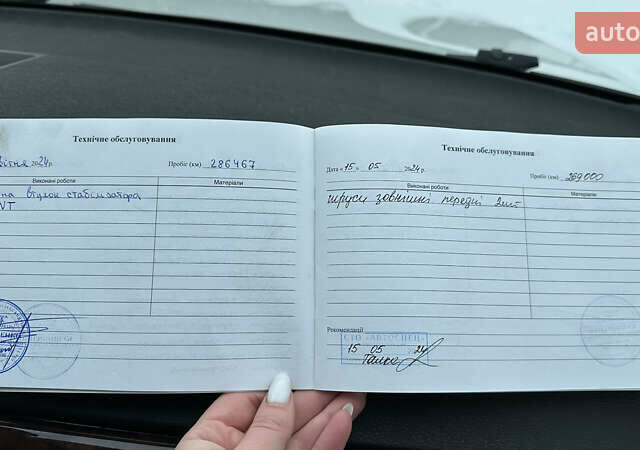 auto
Технічне обслуговування
2024 р.
Пробіг (км) 286467
Виконані роботи
Матеріали
на втулок стабілізатора
VT
Технічне обслуговування
Дата « 15 » 05 2024 р.
Пробіг (км)
Виконані роботи
Матеріали
шруси зовнішні передні 2шт
Рекомендації
СТО «АВТОСПЕЦ»
15 05 24